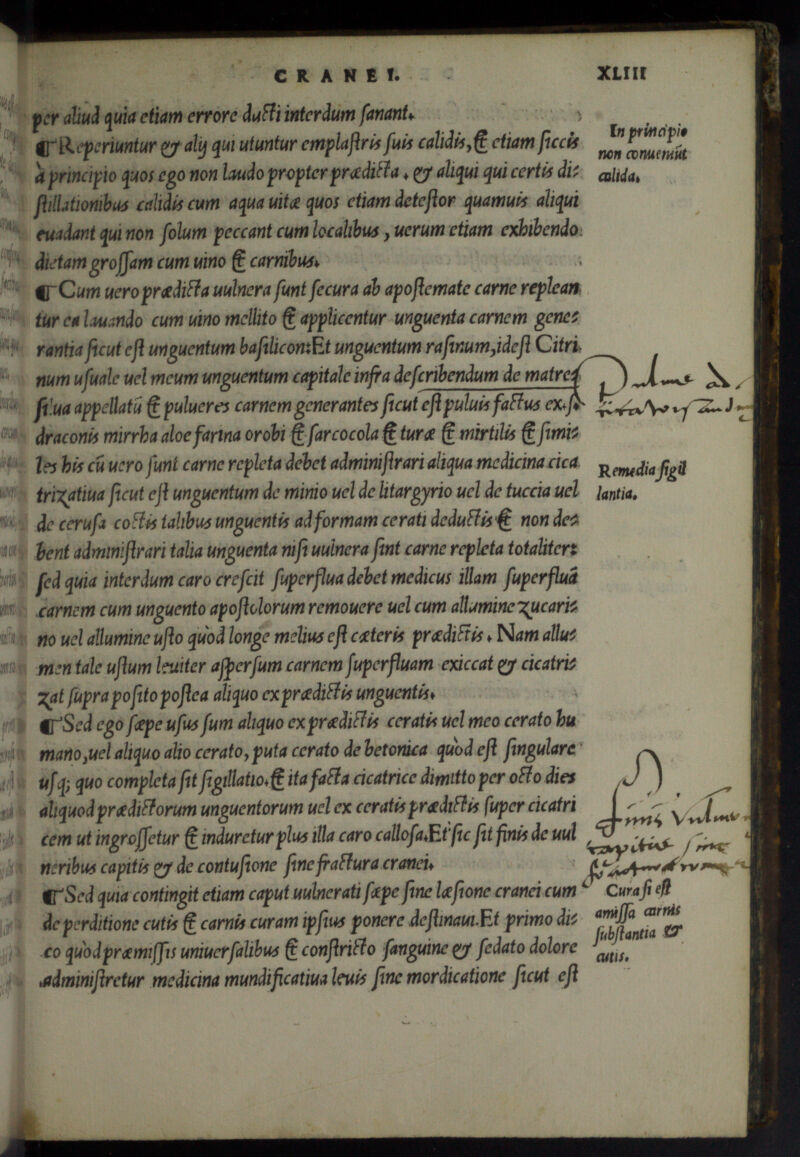 CRANEI. XLIII
per aliud quia etiam errore ducti interdum sanant.
¶ Reperiuntur & alij qui utuntur emplastris suis calidis, & etiam siccis
a principio quos ego non laudo propter prædicta. & aliqui qui certis di-
stillationibus calidis cum aqua uitæ quos etiam detestor quamuis aliqui
euadant qui non solum peccant cum localibus, uerum etiam exhibendo
dietam grossam cum uino & carnibus.
In principio
non conueniūt
calida.
¶ Cum uero prædicta uulnera sunt secura ab apostemate carne replean
tur ea lauando cum uino mellito & applicentur unguenta carnem gene-
rantia sicut est unguentum basilicon: Et unguentum rasinum, idest Citri
num usuale uel meum unguentum capitale infra describendum de matre
silua appellatū & pulueres carnem generantes sicut est puluis factus ex.s.
draconis mirrha aloe farina orobi & sarcocola & turæ & mirtilis & simi-
les his cū uero sunt carne repleta debet administrari aliqua medicina cica
trizatiua sicut est unguentum de minio uel de litargyrio uel de tuccia uel
de cerusa coctis talibus unguentis ad formam cerati deductis & non de-
bent administrari talia unguenta nisi uulnera sint carne repleta totaliter:
sed quia interdum caro crescit superflua debet medicus illam superfluā
carnem cum unguento apostolorum remouere uel cum allumine zucari-
no uel allumine usto quod longe melius est cæteris prædictis. Nam allu-
men tale ustum leuiter aspersum carnem superfluam exiccat & cicatri-
zat supra posito postea aliquo ex prædictis unguentis.
Remedia sigil
lantia.
¶ Sed ego sæpe usus sum aliquo ex prædictis ceratis uel meo cerato hu
mano, uel aliquo alio cerato, puta cerato de betonica quod est singulare
usq; quo completa sit sigillatio. & ita facta cicatrice dimitto per octo dies
aliquod prædictorum unguentorum uel ex ceratis prædictis super cicatri
cem ut ingrossetur & induretur plus illa caro callosa. Et sic sit finis de uul
neribus capitis & de contusione sine fractura cranei.
¶ Sed quia contingit etiam caput uulnerati sæpe sine læsione cranei cum
deperditione cutis & carnis curam ipsius ponere destinaui. Et primo di-
co quod præmissis uniuersalibus & constricto sanguine & sedato dolore
administretur medicina mundificatiua leuis sine mordicatione sicut est
finis
Cura si est
amissa carnis
substantia &
cutis.